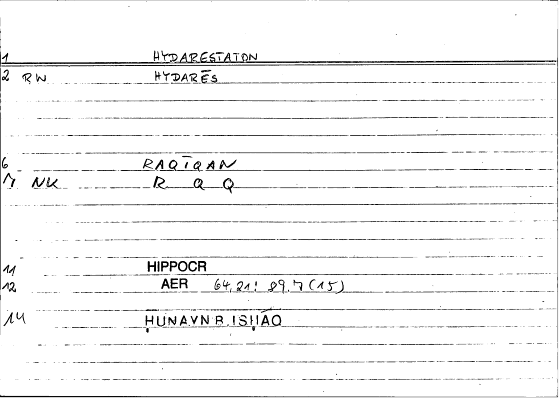 1 HYDARESTATON
2 RW HYDARĒS
6 RAQĪQAN
7 NK R Q Q
11 HIPPOCR
12 AER 64,21: 89,7 (15)
14 ḤUNAYN B. ISḤĀQ